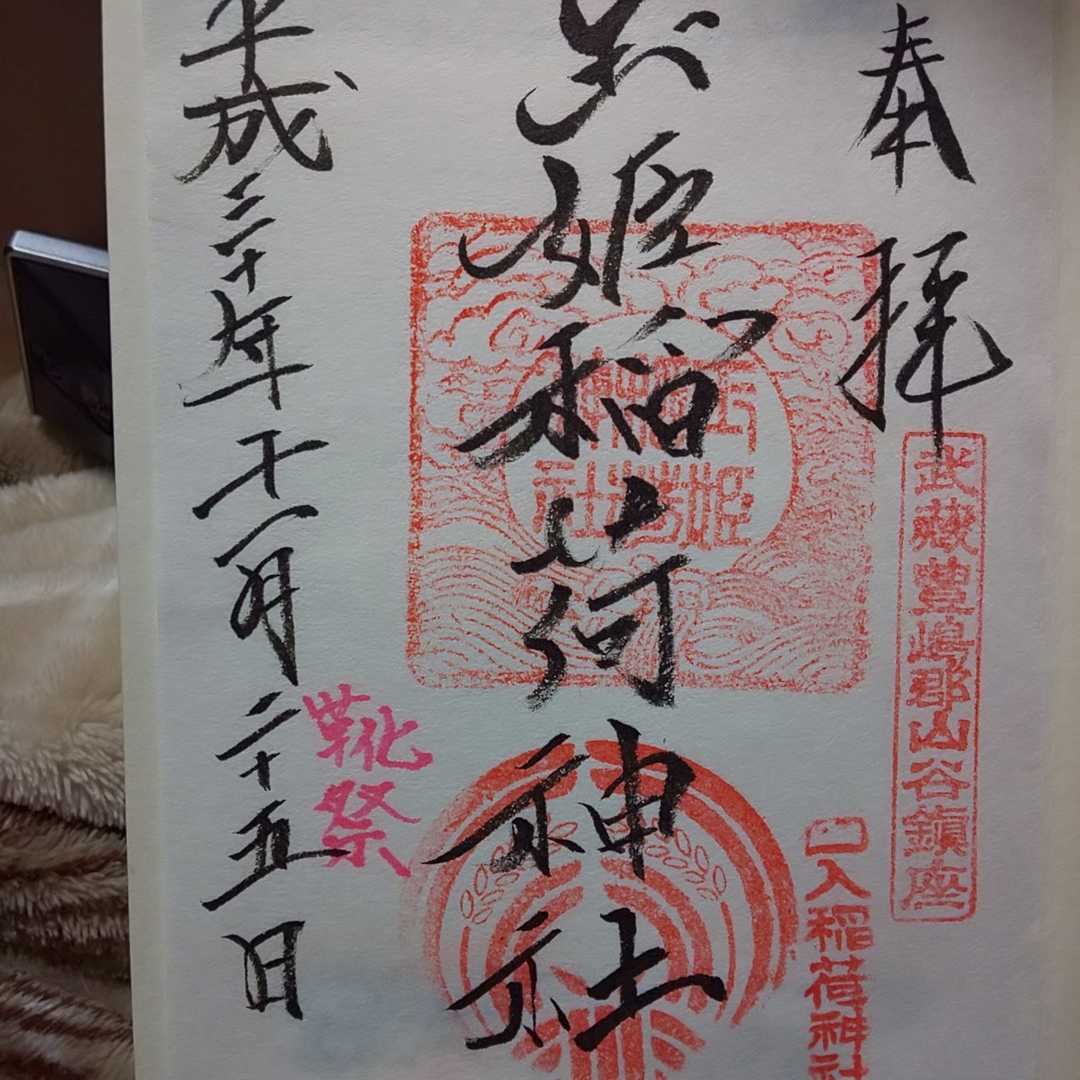 奉拝
武蔵豊嶋郡山谷鎮座
口入稲荷神社
玉姫稲荷神社
玉姫
稲荷
神社
靴祭
平成三十年十一月二十五日